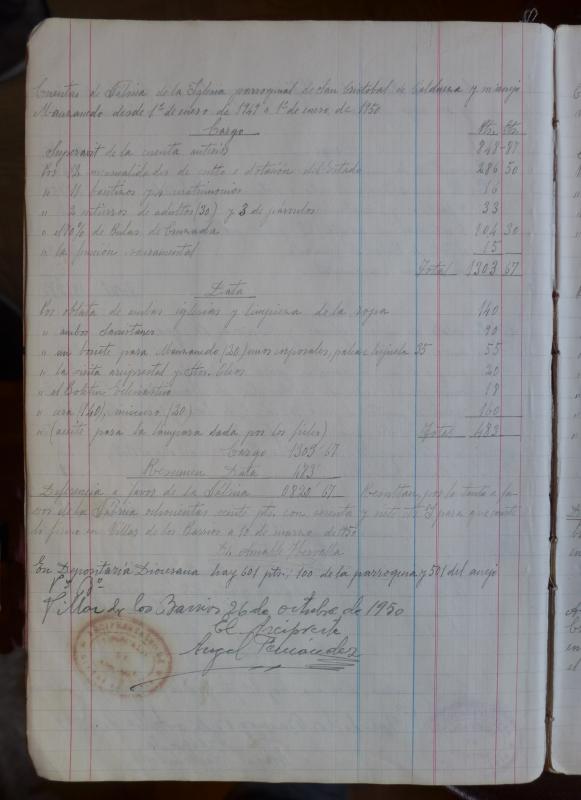 Cuentas de Fábrica de la Iglesia parroquial de San Cristobal de Valdueza y su anejo
Manzanedo desde 1º de enero de 1949 a 1º de enero de 1950
Cargo Pts. Cts.
Superavit de la cuenta anterior 848-87
Por 12 mensualidades de culto o dotación del Estado 286 50
" 11 bautizos y 4 matrimonios 16
" 2 entierros de adultos (30) y 3 de párvulos 33
" el 10% de Bulas de Cruzada 104 30
" la función sacramental 15
Total 1303 67
Data
Por oblata de ambas iglesias y limpieza de la ropa 140
" ambos sacristanes 90
" un bonete para Manzanedo (20) unos corporales, palia e hijuela 35 55
" la visita arciprestal y Stos. Oleos 20
" el Boletin Eclesiástico 18
" cera (140), incienso (20) 160
" (aceite para la lampara dada por los fieles) Total 483
Cargo 1303'67
Resumen Data 483'
Diferencia a favor de la Fábrica 0820'67 Resultan por lo tanto a fa-
vor de la Fábrica ochocientas veinte pts. con sesenta y siete cts. Y para que conste
lo firmo en Villar de los Barrios a 10 de marzo de 1950
En Depositaria Diocesana hay 601 pts; 100 de la parroquia y 501 del anejo
Vº Bº
Villar de los Barrios 26 de octubre de 1950
El Arcipreste
Angel Fernández